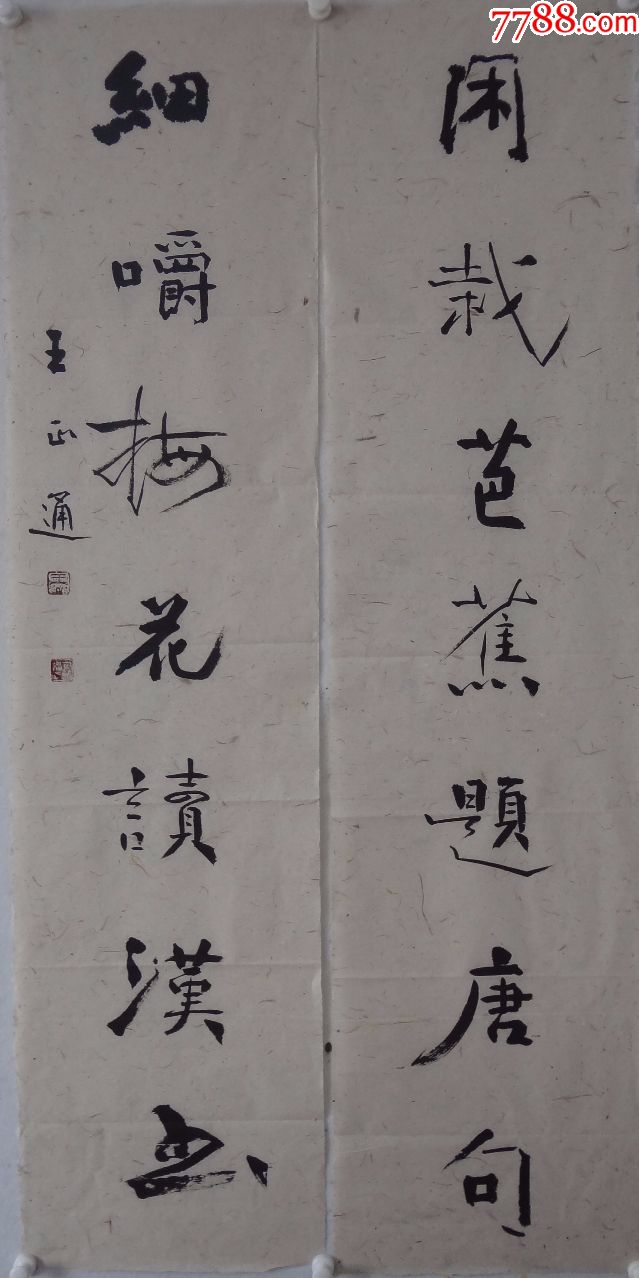 7788.com
闲栽芭蕉题唐句
細嚼梅花讀漢书
王正通